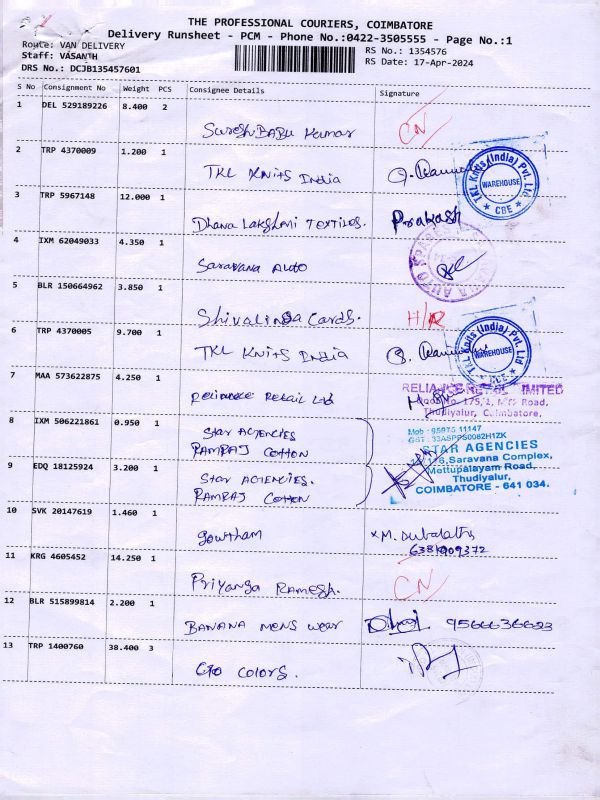 THE PROFESSIONAL COURIERS, COIMBATORE
Delivery Runsheet - PCM - Phone No.:0422-3505555 - Page No.:1
Route: VAN DELIVERY
Staff: VASANTH
DRS No.: DCJB135457601
RS No.: 1354576
RS Date: 17-Apr-2024
S No Consignment No Weight PCS Consignee Details Signature
1 DEL 529189226 8.400 2
Suresh BABU Kumar CN
2 TRP 4370009 1.200 1
TKL Knits India
TKL Knits (India) Pvt. Ltd
WAREHOUSE
CBE
3 TRP 5967148 12.000 1
Dhana Lakshmi Textiles. Prakash
4 IXM 62049033 4.350 1
Saravana Auto
5 BLR 150664962 3.850 1
Shivalinga Cards. H/R
6 TRP 4370005 9.700 1
TKL Knits India
TKL Knits (India) Pvt. Ltd
WAREHOUSE
CBE
7 MAA 573622875 4.250 1
Reliance Retail Ltd
RELIANCE RETAIL LIMITED
Door No. 175/1, Road,
Thudiyalur, Coimbatore.
8 IXM 506221861 0.950 1
Star AGENCIES
RAMRAJ COTTON
9 EDQ 18125924 3.200 1
Star AGENCIES.
RAMRAJ COTTON
Mob : 95975 11147
STAR AGENCIES
Saravana Complex,
Mettupalayam Road,
Thudiyalur,
COIMBATORE - 641 034.
10 SVK 20147619 1.460 1
Gowtham
6381909372
11 KRG 4605452 14.250 1
Priyanga Ramesh. CN
12 BLR 515899814 2.200 1
BANANA MENS WEAR
13 TRP 1400760 38.400 3
Colors.